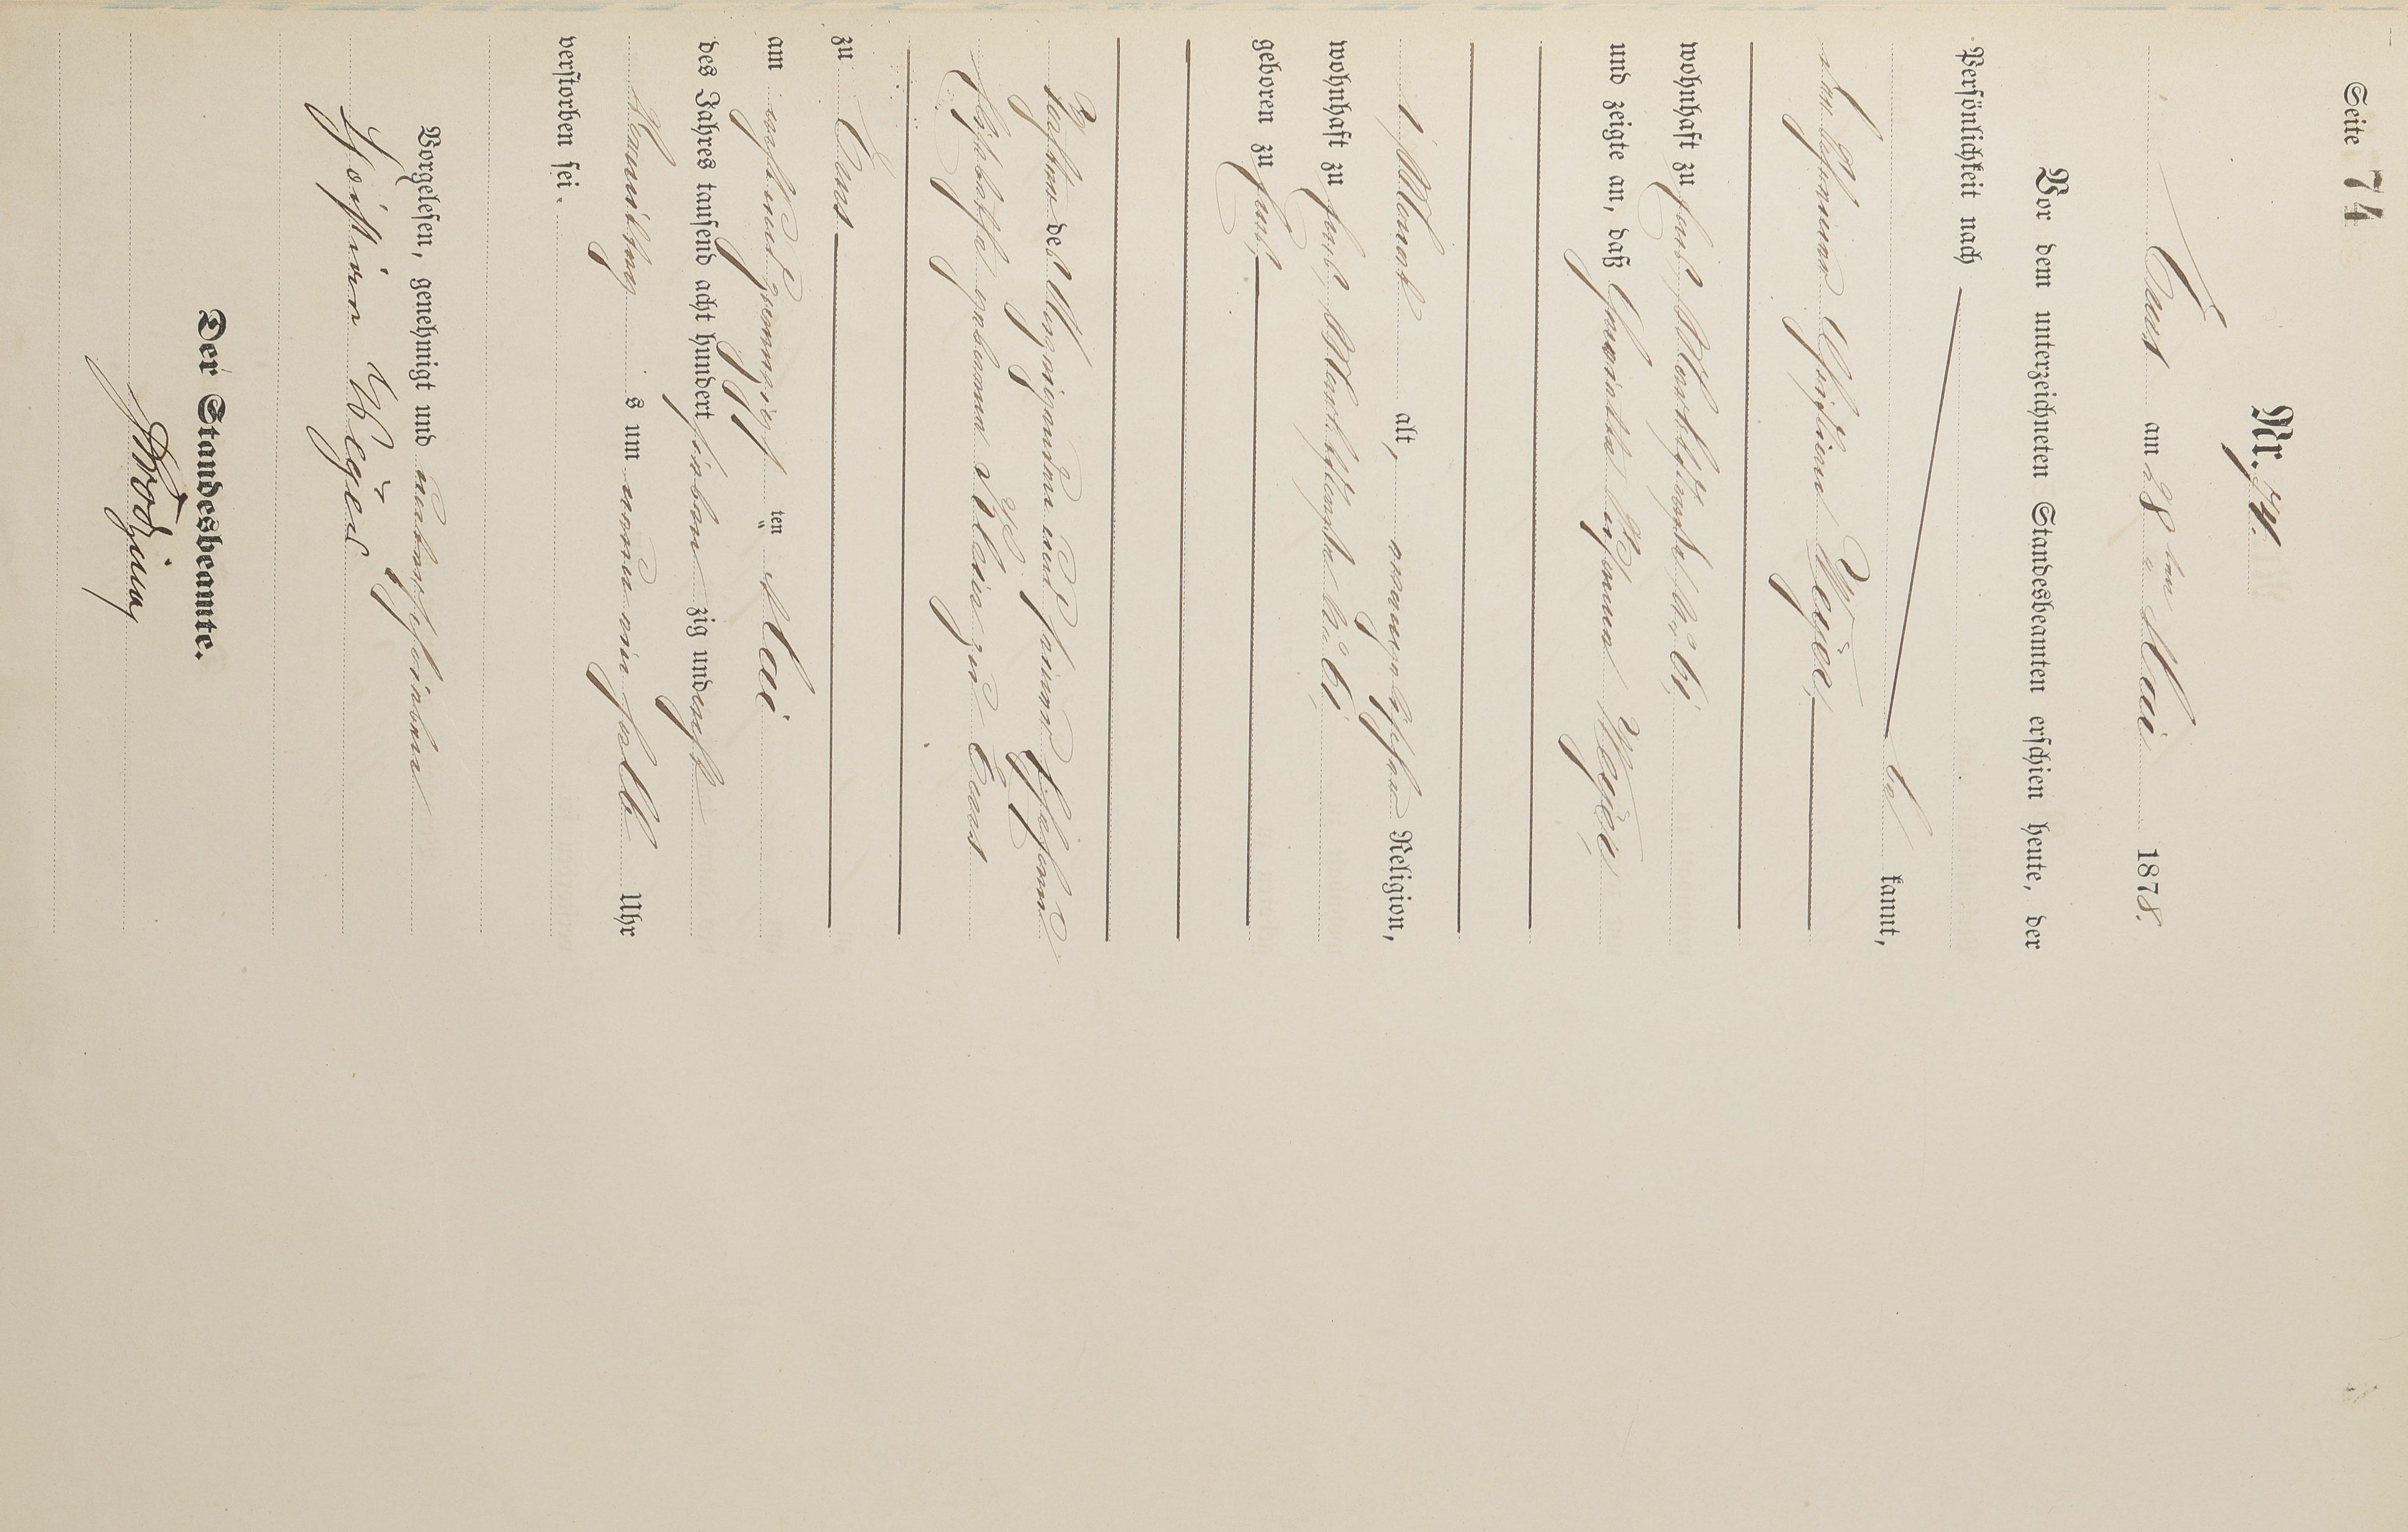 Seite 74
Nr. 74.
Ems am 28ten Mai 1878.
Vor dem unterzeichneten Standesbeamten erschien heute, der
Persönlichkeit nach
be kannt,
Christian Weyel,
wohnhaft zu Ems, Marktstraße No 61,
und zeigte an, daß Henriette Weyel,
1 Monat alt, evangelischer Religion,
wohnhaft zu Ems, Marktstraße No 61,
geboren zu Ems,
Tochter des Anzeigenden und seiner Ehefrau
Elisabetha geborene zu Ems
zu Ems
am achtundzwanzigsten Mai
des Jahres tausend acht hundert sieben zig und acht
Vormittags um ein halb Uhr
verstorben sei.
Vorgelesen, genehmigt und unterschrieben
Christian Weyel
Der Standesbeamte.